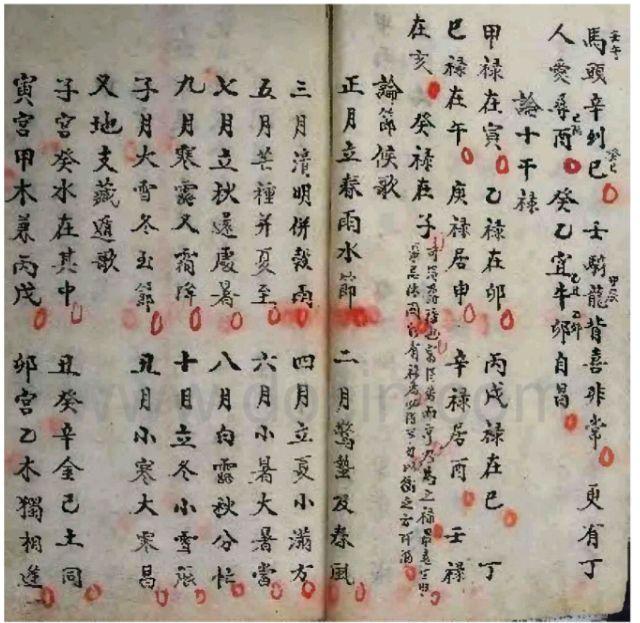 馬頭辛列巳 壬騎龍背喜非常 更有丁
人愛尋酉 癸乙宜牛卯自昌
論十干祿
甲祿在寅 乙祿在卯 丙戊祿在巳 丁
巳祿在午 庚祿居申 辛祿居酉 壬祿
在亥 癸祿在子
論節候歌
正月立春雨水節 二月驚蟄及春風
三月清明併穀雨 四月立夏小滿方
五月芒種并夏至 六月小暑大暑當
七月立秋還處暑 八月白露秋分忙
九月寒露又霜降 十月立冬小雪張
子月大雪冬玉節 丑月小寒大寒昌
又地支藏遁歌
子宮癸水在其中 丑癸辛金己土同
寅宮甲木兼丙戊 卯宮乙木獨相逢